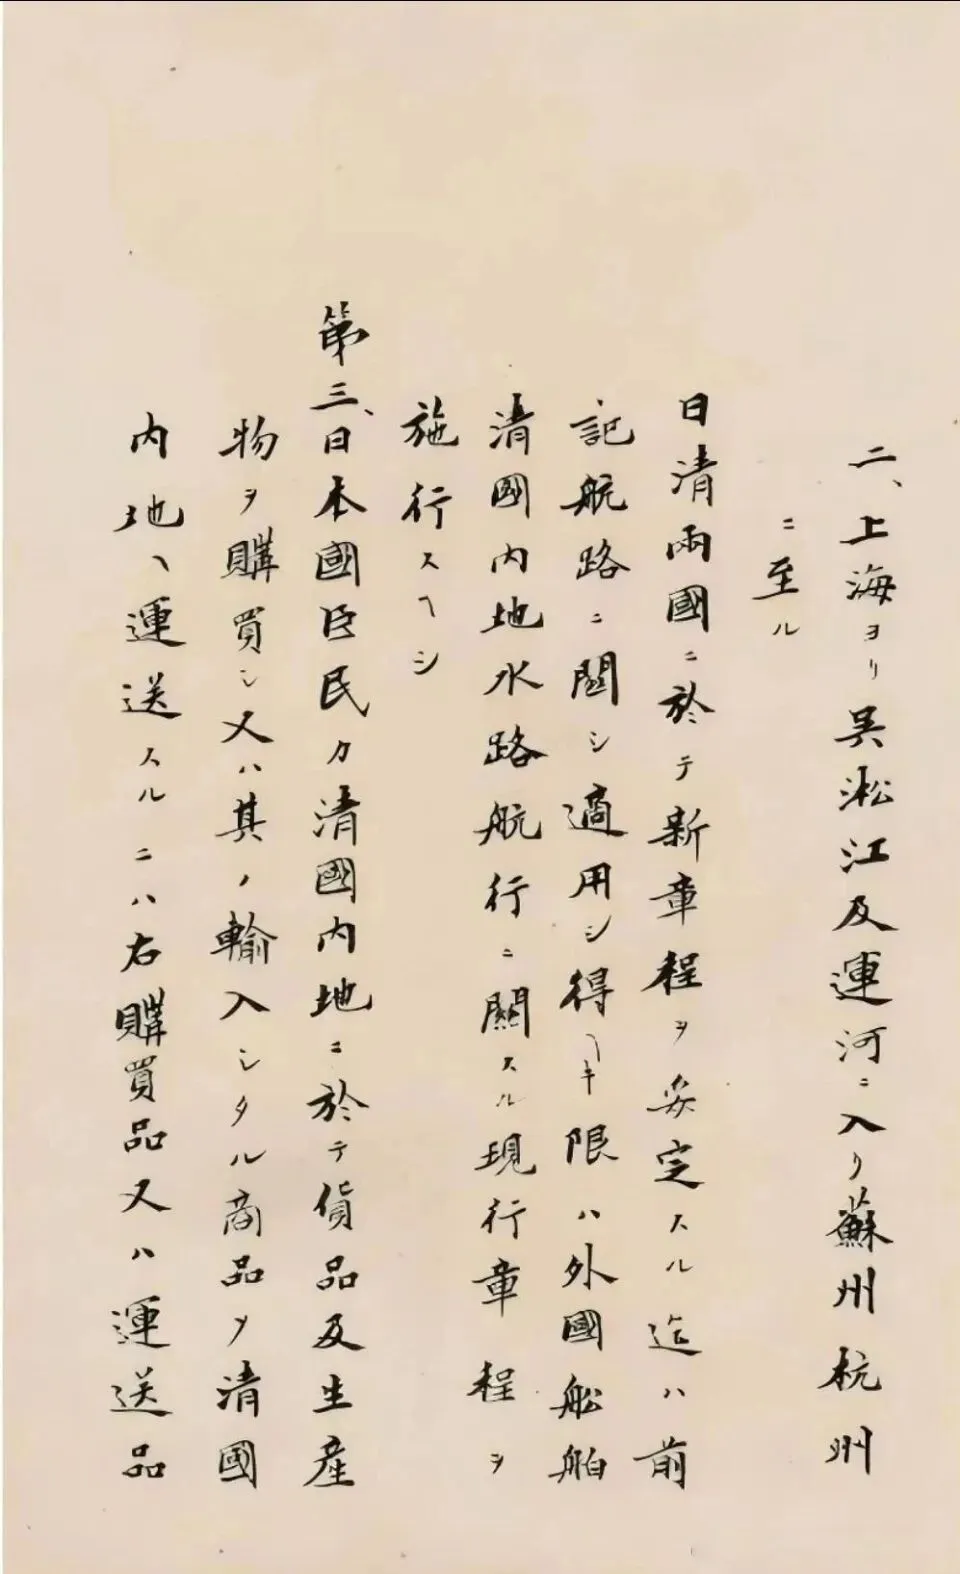 二、上海ヨリ呉淞江及運河ニ入リ蘇州杭州
ニ至ル
日清兩國ニ於テ新章程ヲ妥定スル迄ハ前
記航路ニ關シ適用シ得ヘキ限ハ外國船舶
清國内地水路航行ニ關スル現行章程ヲ
施行スヘシ
第三、日本國臣民カ清國内地ニ於テ貨品及生産
物ヲ購買シ又ハ其ノ輸入シタル商品ヲ清國
内地ヘ運送スルニハ右購買品又ハ運送品